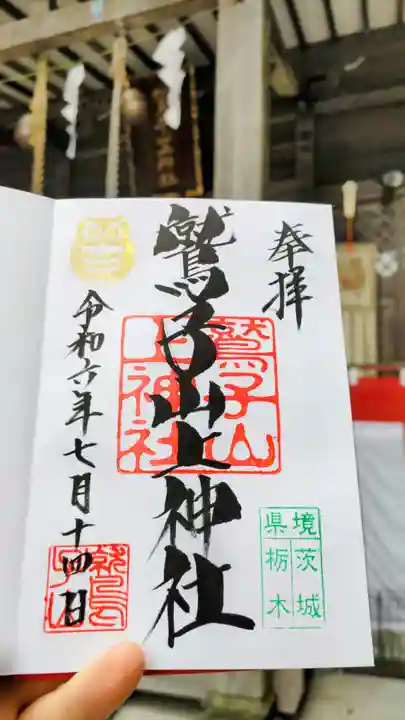 奉拝
鷲子山上神社
令和六年七月十四日
鷲子山
上神社
境茨城
県栃木